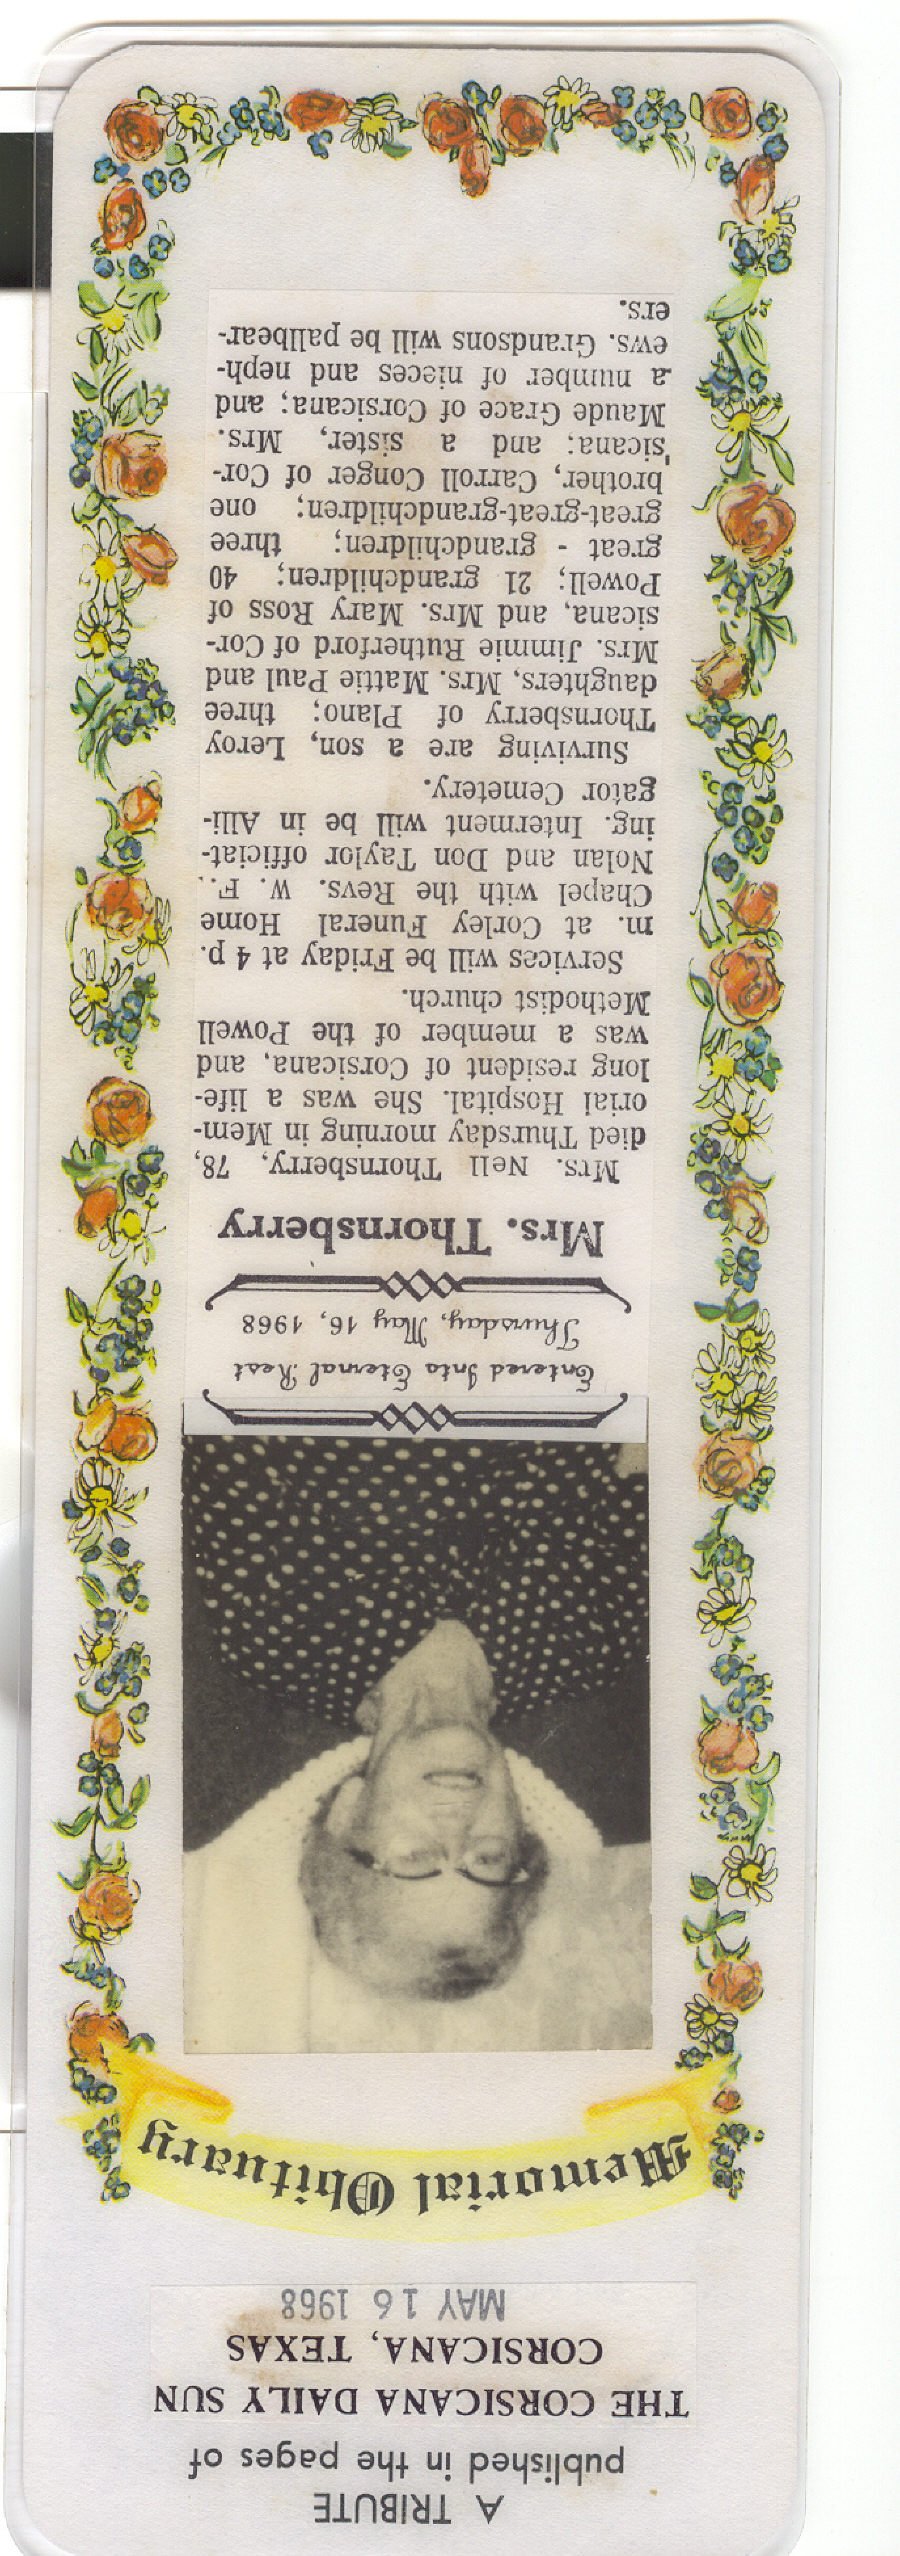 A TRIBUTE
published in the pages of
THE CORSICANA DAILY SUN
CORSICANA, TEXAS
MAY 16 1968
Memorial Obituary
Entered Into Eternal Rest
Thursday, May 16, 1968
Mrs. Thornsberry
Mrs. Nell Thornsberry, 78,
died Thursday morning in Mem-
orial Hospital. She was a life-
long resident of Corsicana, and
was a member of the Powell
Methodist church.
Services will be Friday at 4 p.
m. at Corley Funeral Home
Chapel with the Revs. W. F.
Nolan and Don Taylor officiat-
ing. Interment will be in Alli-
gator Cemetery.
Surviving are a son, Leroy
Thornsberry of Plano; three
daughters, Mrs. Mattie Paul and
Mrs. Jimmie Rutherford of Cor-
sicana, and Mrs. Mary Ross of
Powell; 21 grandchildren; 40
great - grandchildren; three
great-great-grandchildren; one
brother, Carroll Conger of Cor-
sicana; and a sister, Mrs.
Maude Grace of Corsicana; and
a number of nieces and neph-
ews. Grandsons will be pallbear-
ers.